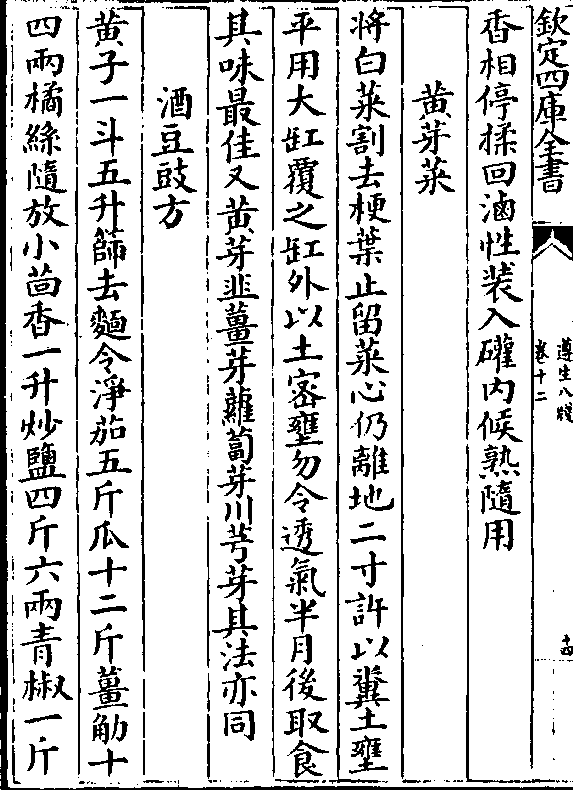 欽定四庫全書
遵生八牋
卷十二
十四
香相停揉回滷性裝入礶内候熟隨用
黄芽菜
將白菜割去梗葉止留菜心仍離地二寸許以糞土壅
平用大缸覆之缸外以土宻壅勿令透氣半月後取食
其味最佳又黄芽韭薑芽蘿蔔芽川芎芽其法亦同
酒豆豉方
黄子一斗五升篩去麵令淨茄五斤瓜十二斤薑觔十
四兩橘絲隨放小茴香一升炒鹽四斤六兩青椒一斤